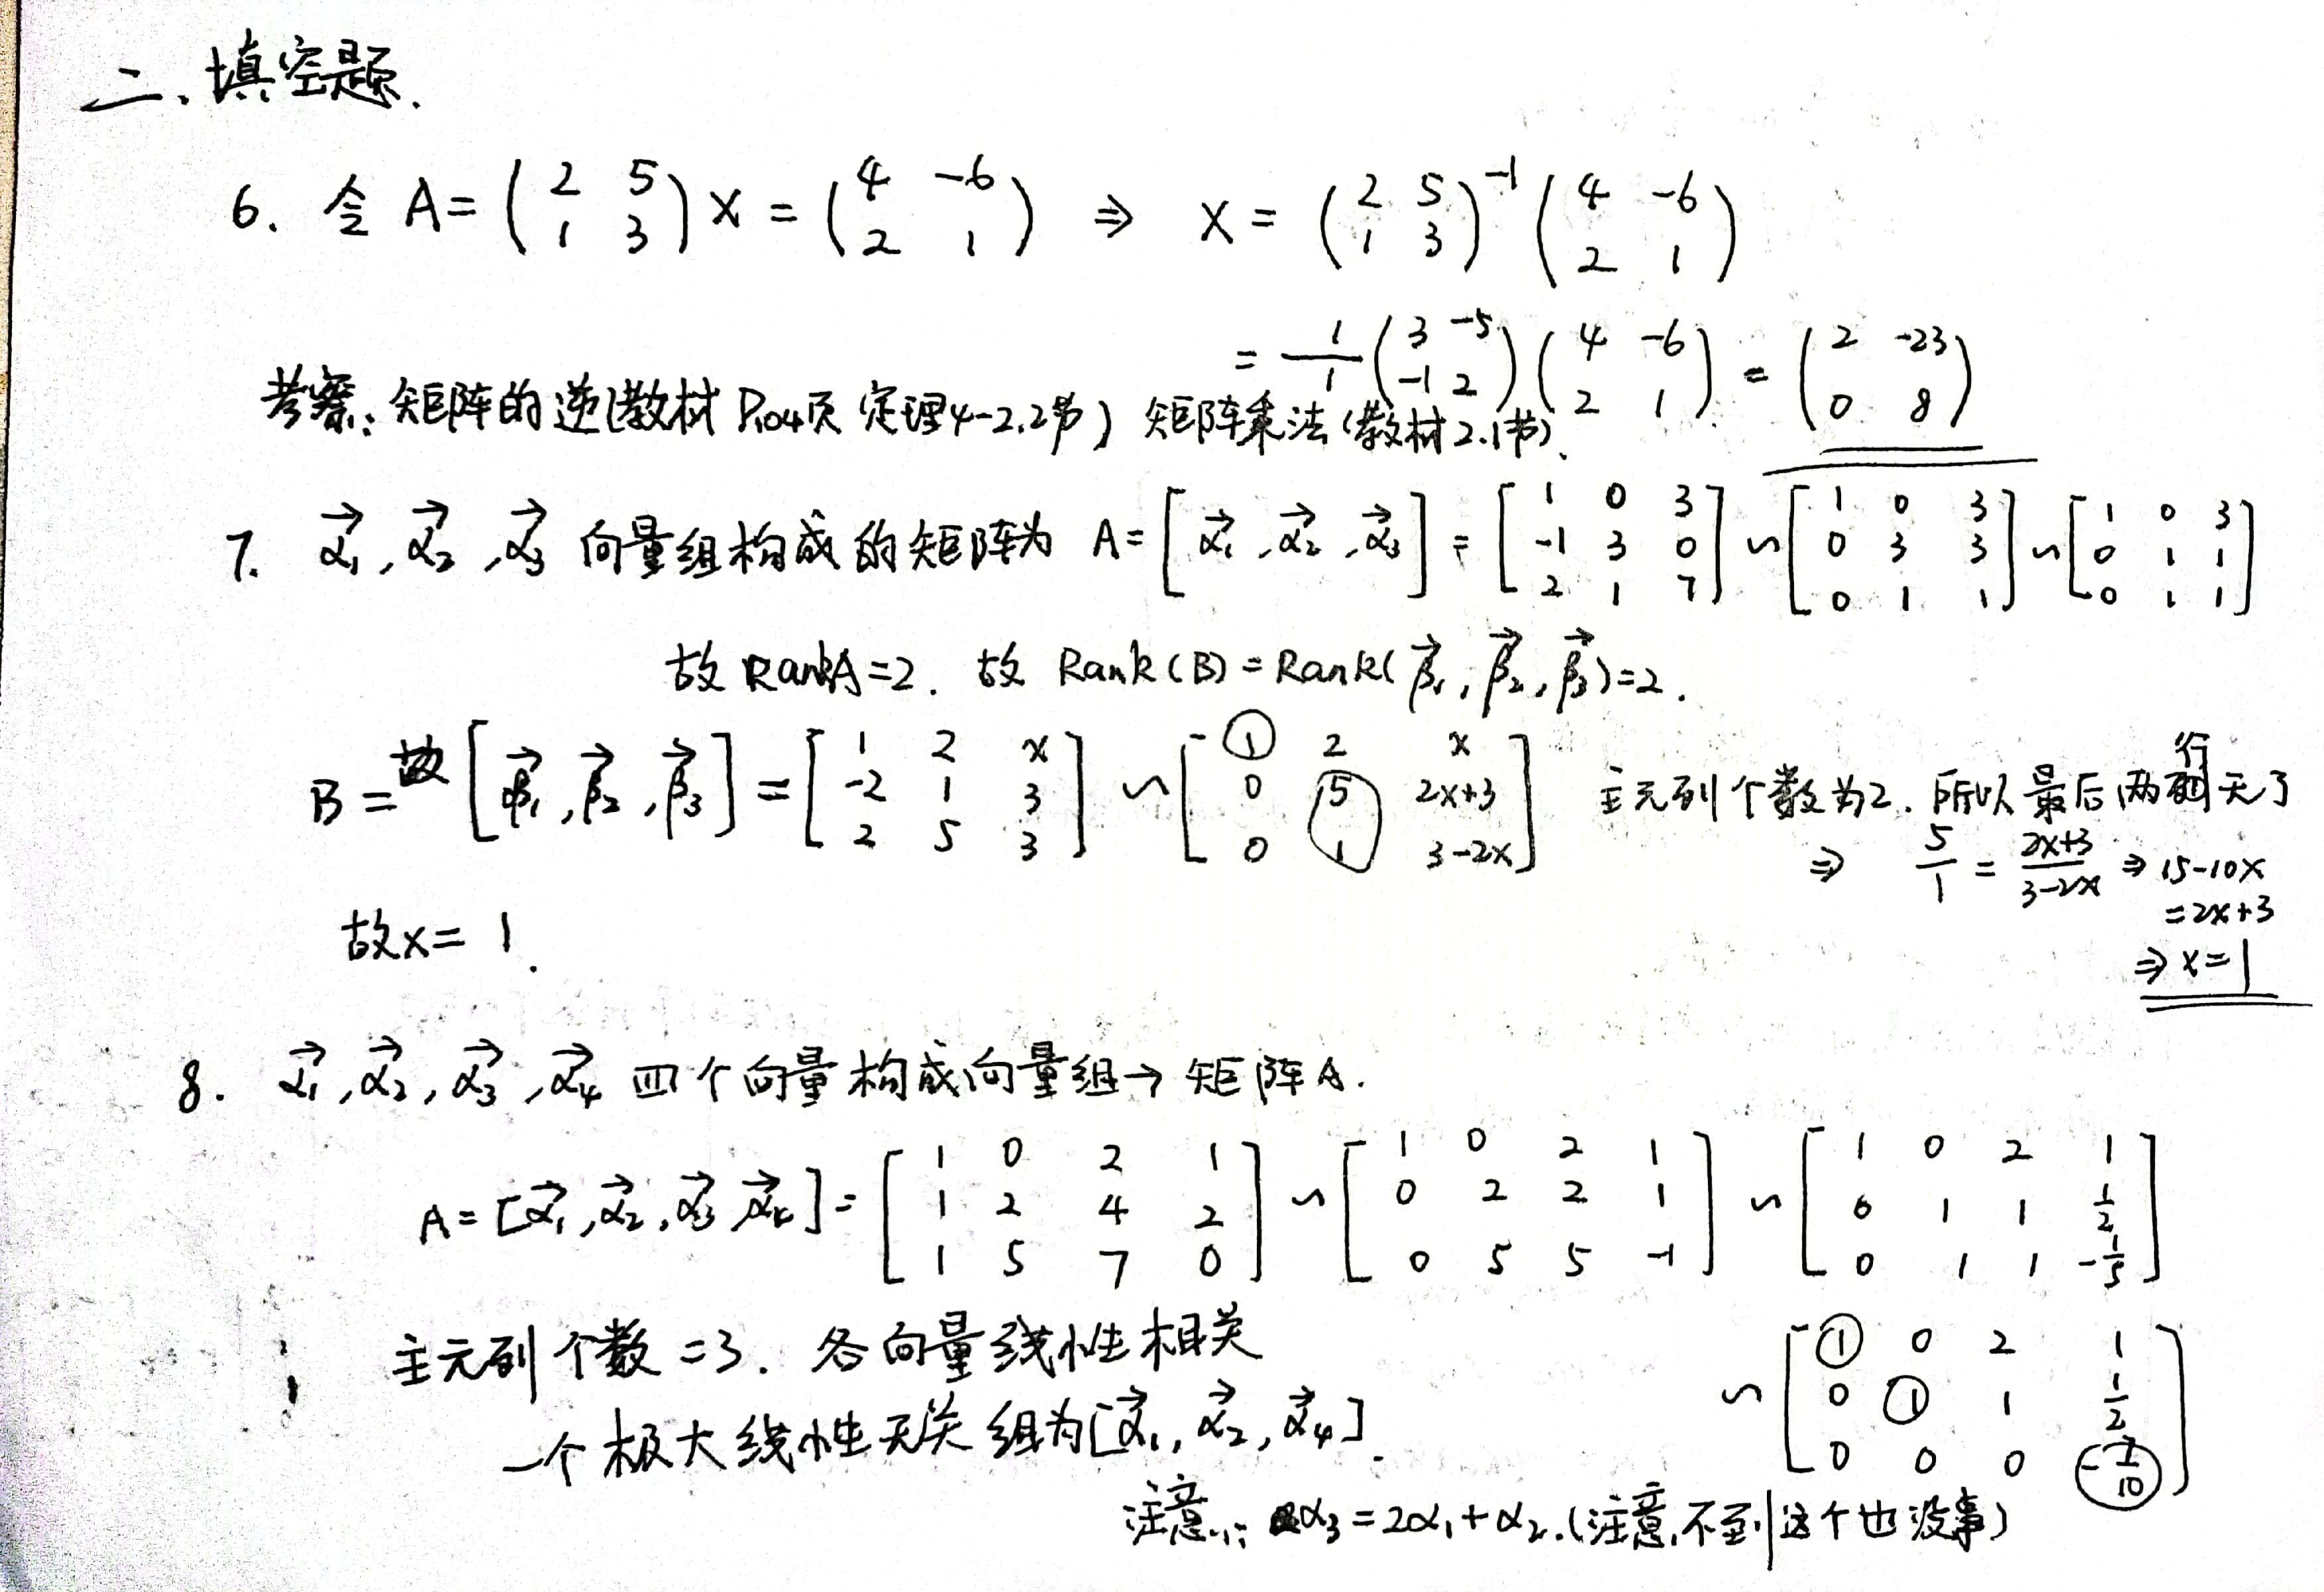 二、填空题.
6. 令 A= (2 5 / 1 3) X = (4 -6 / 2 1) ⇒ X = (2 5 / 1 3)⁻¹ (4 -6 / 2 1)
= 1/1 (3 -5 / -1 2) (4 -6 / 2 1) = (2 -23 / 0 8)
考察: 矩阵的逆(教材 P104页 定理4-2.2节) 矩阵乘法(教材2.1节).
7. α⃗₁, α⃗₂, α⃗₃ 向量组构成的矩阵为 A= [α⃗₁, α⃗₂, α⃗₃] = [1 0 3 / -1 3 0 / 2 1 7] ~ [1 0 3 / 0 3 3 / 0 1 1] ~ [1 0 3 / 0 1 1 / 0 1 1]
故 RankA=2. 故 Rank(B) = Rank(β⃗₁, β⃗₂, β⃗₃)=2.
B = [β⃗₁, β⃗₂, β⃗₃] = [1 2 x / -2 1 3 / 2 5 3] ~ [1 2 x / 0 5 2x+3 / 0 1 3-2x] 主元列个数为2. 所以最后两行
⇒ 5/1 = (2x+3)/(3-2x) ⇒ 15-10x
=2x+3
故x= 1.
⇒ x=1
8. α⃗₁, α⃗₂, α⃗₃, α⃗₄ 四个向量构成向量组→矩阵A.
A= [α⃗₁, α⃗₂, α⃗₃, α⃗₄] = [1 0 2 1 / 1 2 4 2 / 1 5 7 0] ~ [1 0 2 1 / 0 2 2 1 / 0 5 5 -1] ~ [1 0 2 1 / 0 1 1 1/2 / 0 1 1 -1/5]
主元列个数 =3. 各向量线性相关
~ [1 0 2 1 / 0 1 1 1/2 / 0 0 0 -7/10]
一个极大线性无关组为[α⃗₁, α⃗₂, α⃗₄].
注意: α₃ = 2α₁+α₂.(注意不到这个也没事)